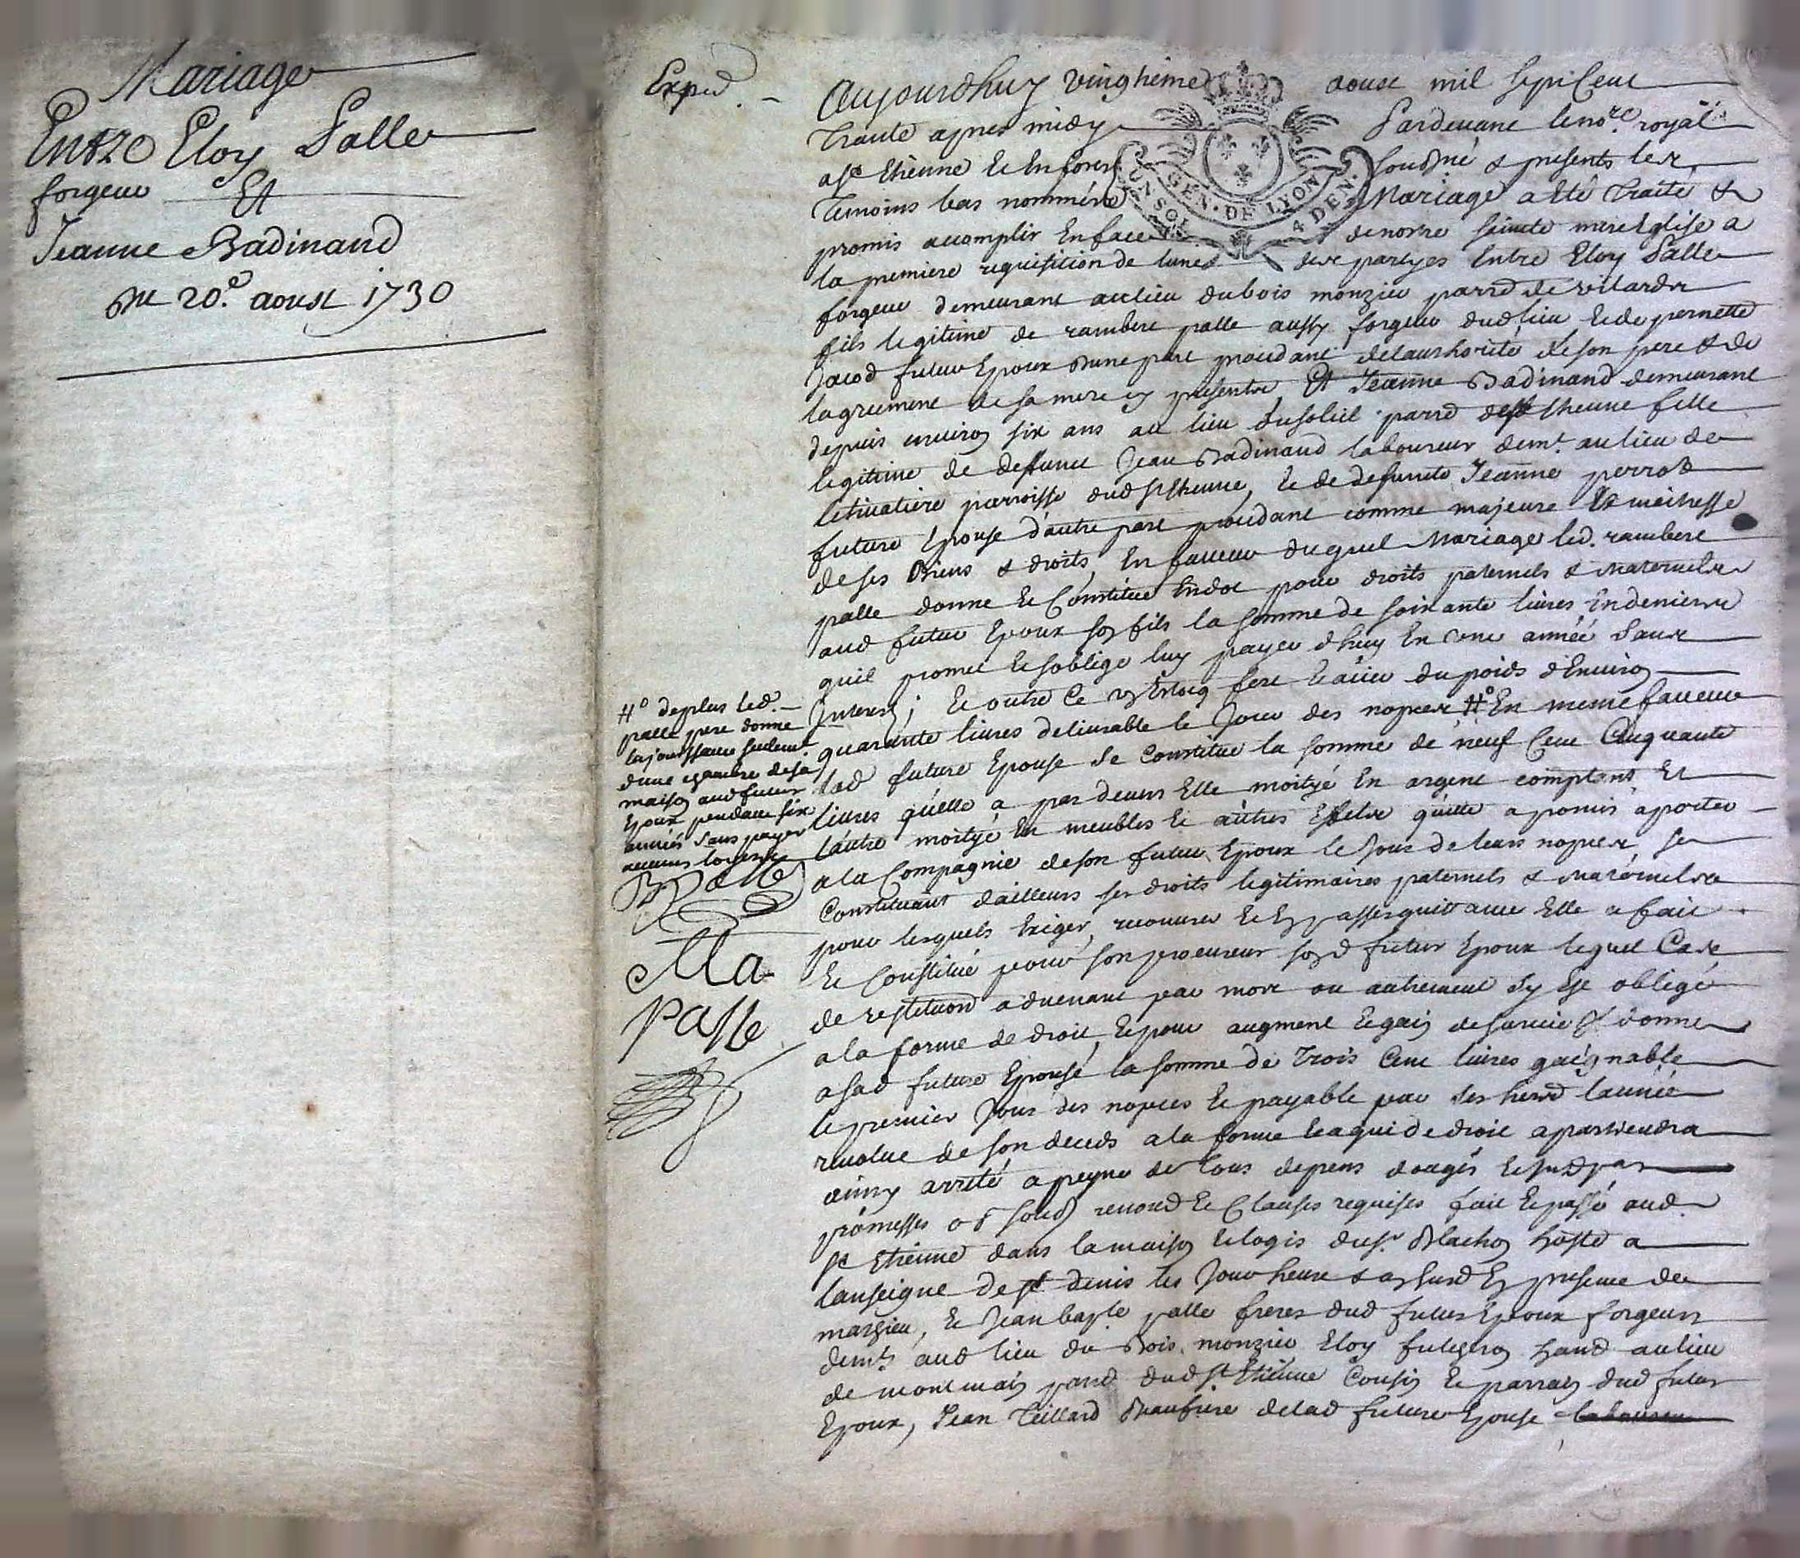 Mariage
Entre Eloy Palle
forgeur Et
Jeanne Badinand
Du 20.e aoust 1730
Exped.
Aujourdhuy vingtieme aoust mil sept Cent
Trante apres midy Pardevant le no.re royal
a St Etienne Et en forest sousigné & presents les
temoins bas nommés Mariage a Eté Traité &
promis accomplir En face de nostre Saincte mere Eglise a
la premiere requisition de lune des partyes Entre Eloy Palle
forgeur demeurant au lieu du bois monzieu parr.d de vilards
fils legitime de rambert palle aussy forgeur dud lieu Et de pernette
Jacod futur Epoux dune part procedant de lauthorité de son pere & de
lagreement de sa mere cy presents Et Jeanne Badinand demeurant
depuis environ six ans au lieu du soleil parrd de St Etienne fille
legitime de deffunct Jean Badinand laboureur demt. au lieu de
letivaliere parroisse dud St Etienne, Et de defuncte Jeanne perrot
future Epouse dautre part procedant comme majeure Et maitresse
de ses Biens & droits, En faveur duquel Mariage led. rambert
palle donne Et Constitue En dot pour droits paternels & maternels
aud futur Epoux son fils la somme de soixante livres En deniers
quil promet Et soblige luy payer dhuy En une année sans
Interest; Et outre ce un fert Et acier du poids denviron
quarante livres delivrable le Jour des nopces #o En meme faveur
lad future Epouse se Constitue la somme de neuf Cent Cinquante
livres quelle a par devers Elle moityé En argent comptant Et
lautre moityé En meubles Et autres Effets quelle a promis aporter
a la Compagnie de son futur Epoux le Jour de leurs nopces se
Constituant dailleurs ses droits legitimaires paternels & maternels
pour lesquels Exiger, recouvrer Et En passer quittance Elle a fait
Et Constitué pour son procureur sond futur Epoux lequel Cas
de restitution advenant par mort ou autrement sy Est obligé
a la forme de droit, Et pour augment Et gain de survie Il donne
a sad future Epouse la somme de Trois Cent livres gaignable
le premier Jour des nopces Et payable par ses heirs lannée
revolue de son deceds a la forme Et a qui de droit apartiendra
ainsy arrêté a peyne de tous depens domages Et
promesses obligations renond Et Clauses requises fait Et passé aud
St Etienne dans la maison Et logis du sr. Blachon hoste a
lanseigne de St denis les Jour heure & an susd En presence de
mathieu, Et Jean bapte palle freres dud futur Epoux forgeurs
demts aud lieu du Bois monzieu Eloy habd au lieu
de montmain parrd dud St Etienne Cousin Et parrain dud futur
Epoux, Jean Teillard Beaufrere de lad future Epouse
#o de plus led.
palle pere donne
la jouissance seulemt
dune chambre de sa
maison aud futur
Epoux pendant six
années sans payer
aucuns loyers
Palle
Ma
Palle
GEN. DE LYON
UN SOL
4 DEN.